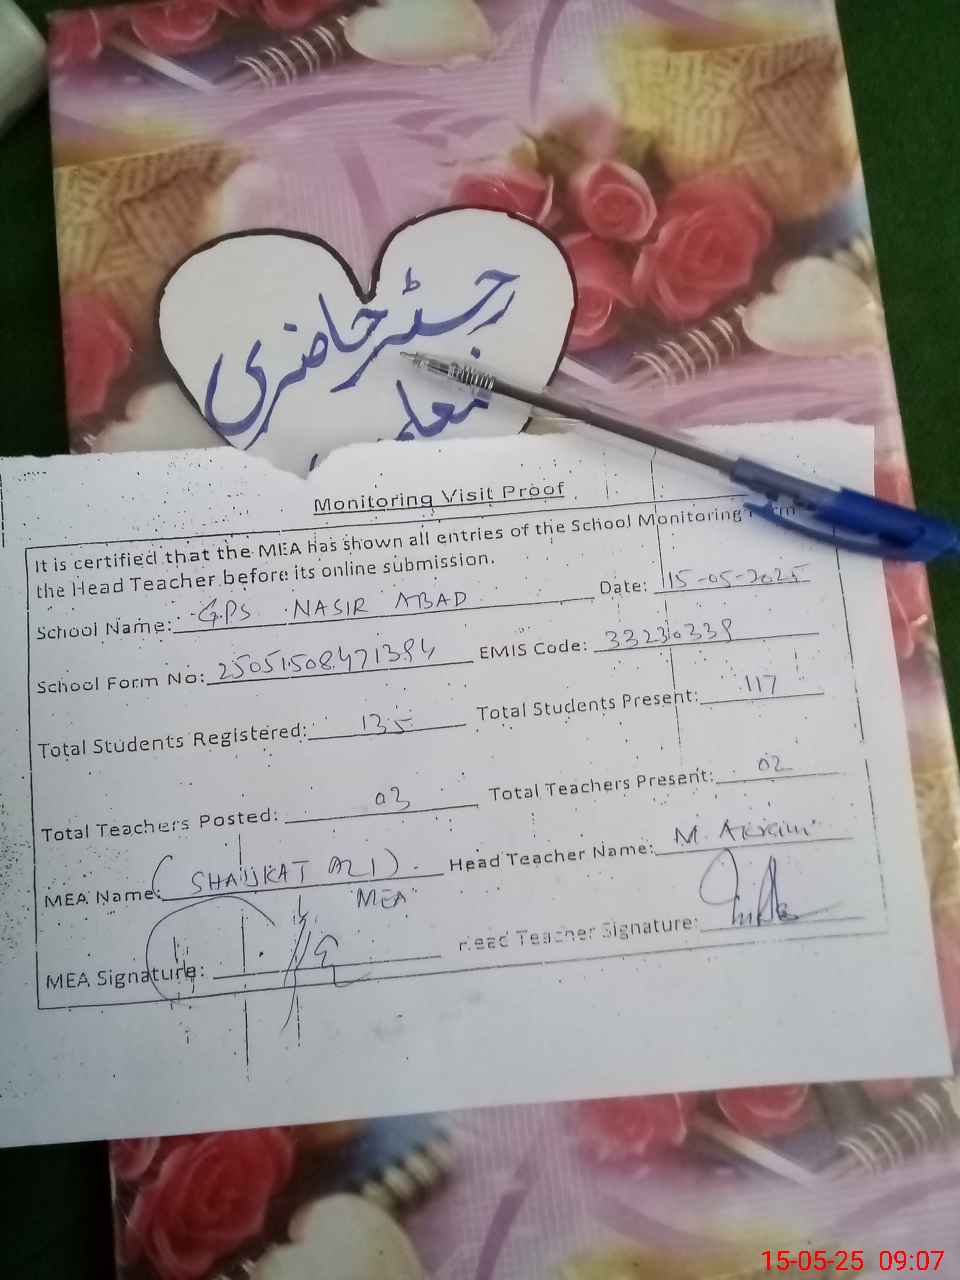 رجسٹر حاضری
معلمین
Monitoring Visit Proof
It is certified that the MEA has shown all entries of the School Monitoring Form
the Head Teacher before its online submission.
School Name: G.P.S NASIR ABAD Date: 15-05-2025
School Form No: EMIS Code: 33230339
Total Students Registered: 135 Total Students Present: 117
Total Teachers Posted: 03 Total Teachers Present: 02
MEA Name: (SHAUKAT ALI) Head Teacher Name: M. Akram
MEA
MEA Signature: Head Teacher Signature:
15-05-25 09:07